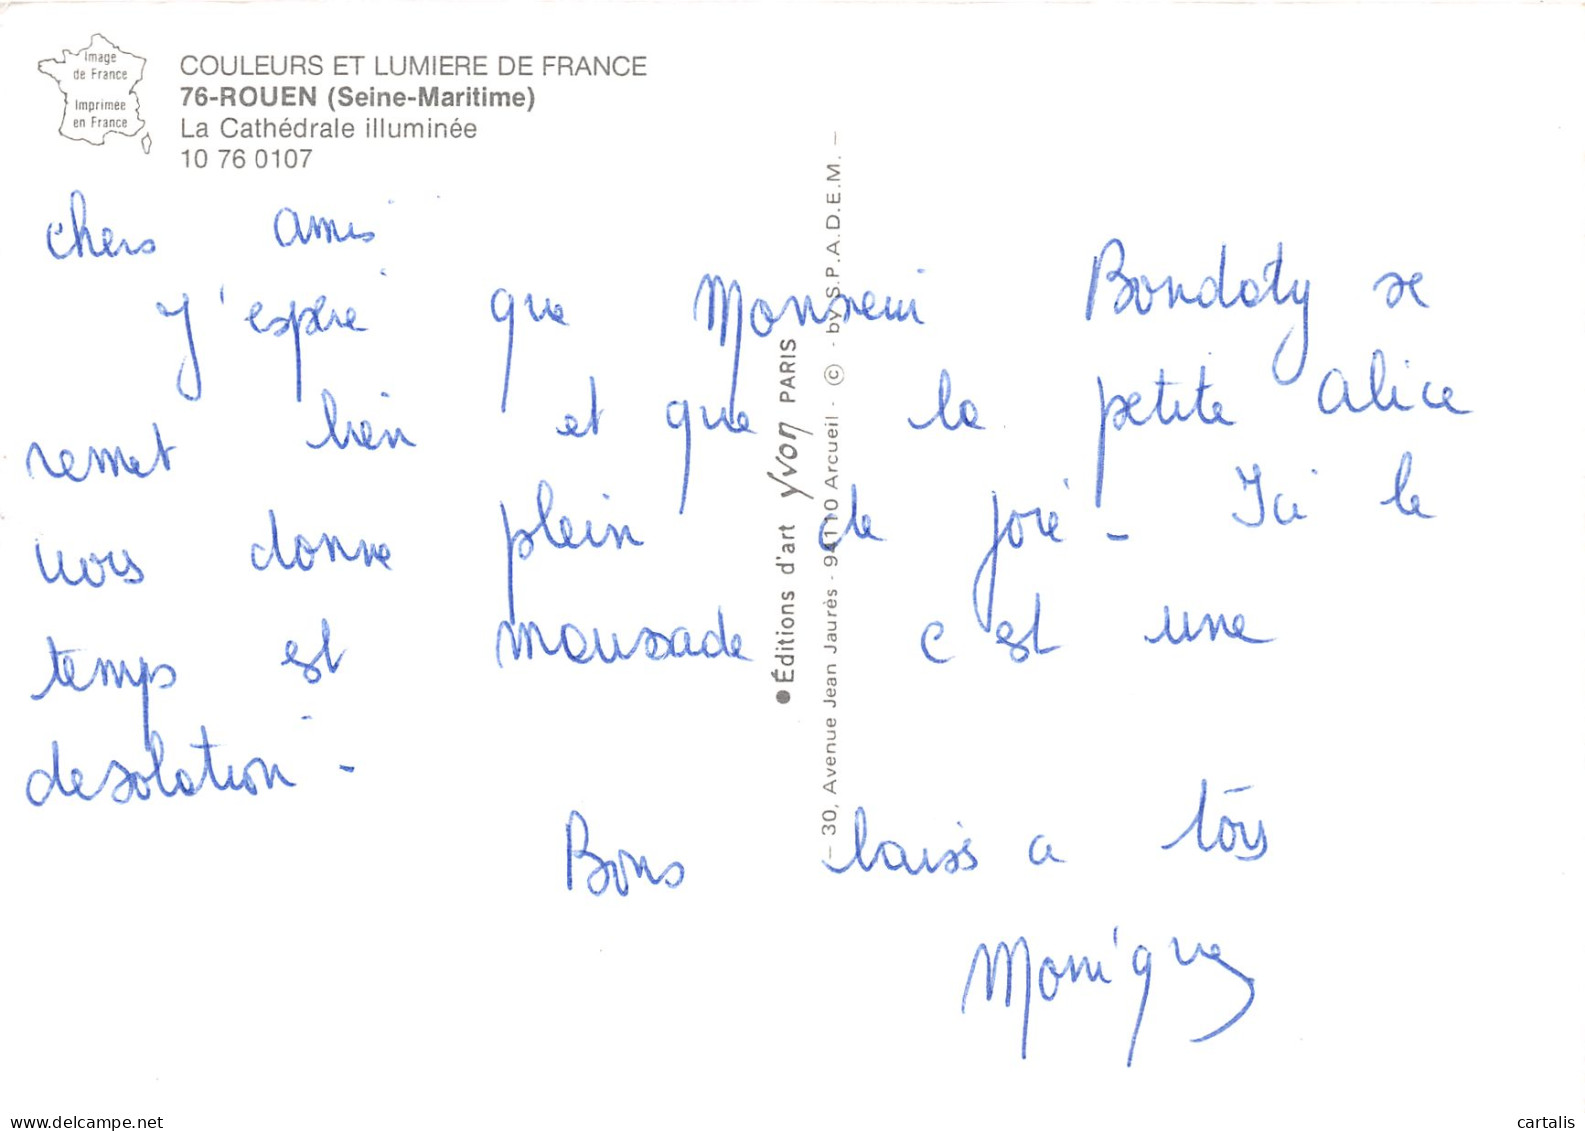 Image
de France
Imprimée
en France
COULEURS ET LUMIERE DE FRANCE
76-ROUEN (Seine-Maritime)
La Cathédrale illuminée
10 76 0107
chers amis
J'espère que Monsieur Bondoty se
remet bien et que la petite Alice
vous donne plein de joie - Ici le
temps est maussade c est une
desolation -
Bons baiss a tous
Monique
● Éditions d'art yvon PARIS
– 30, Avenue Jean Jaurès - 94110 Arcueil - © - by S.P.A.D.E.M. –
www.delcampe.net
cartalis